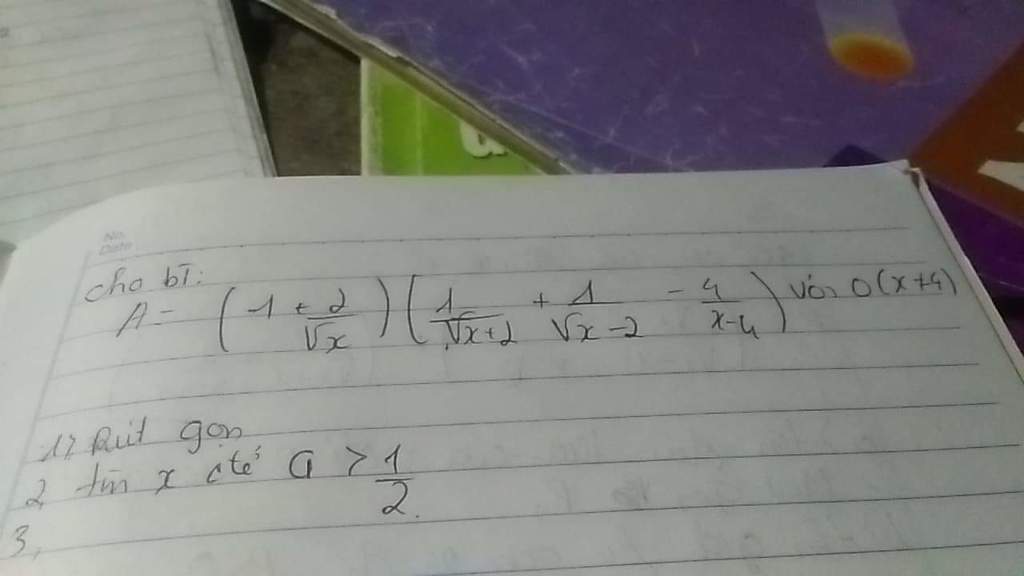 No.
Date
Cho bT:
A = (1 + 2/√x) (1/√x+2 + 1/√x-2 - 4/x-4) với 0(x+4)
1, Rút gọn
2, tìm x để G > 1/2.
3,